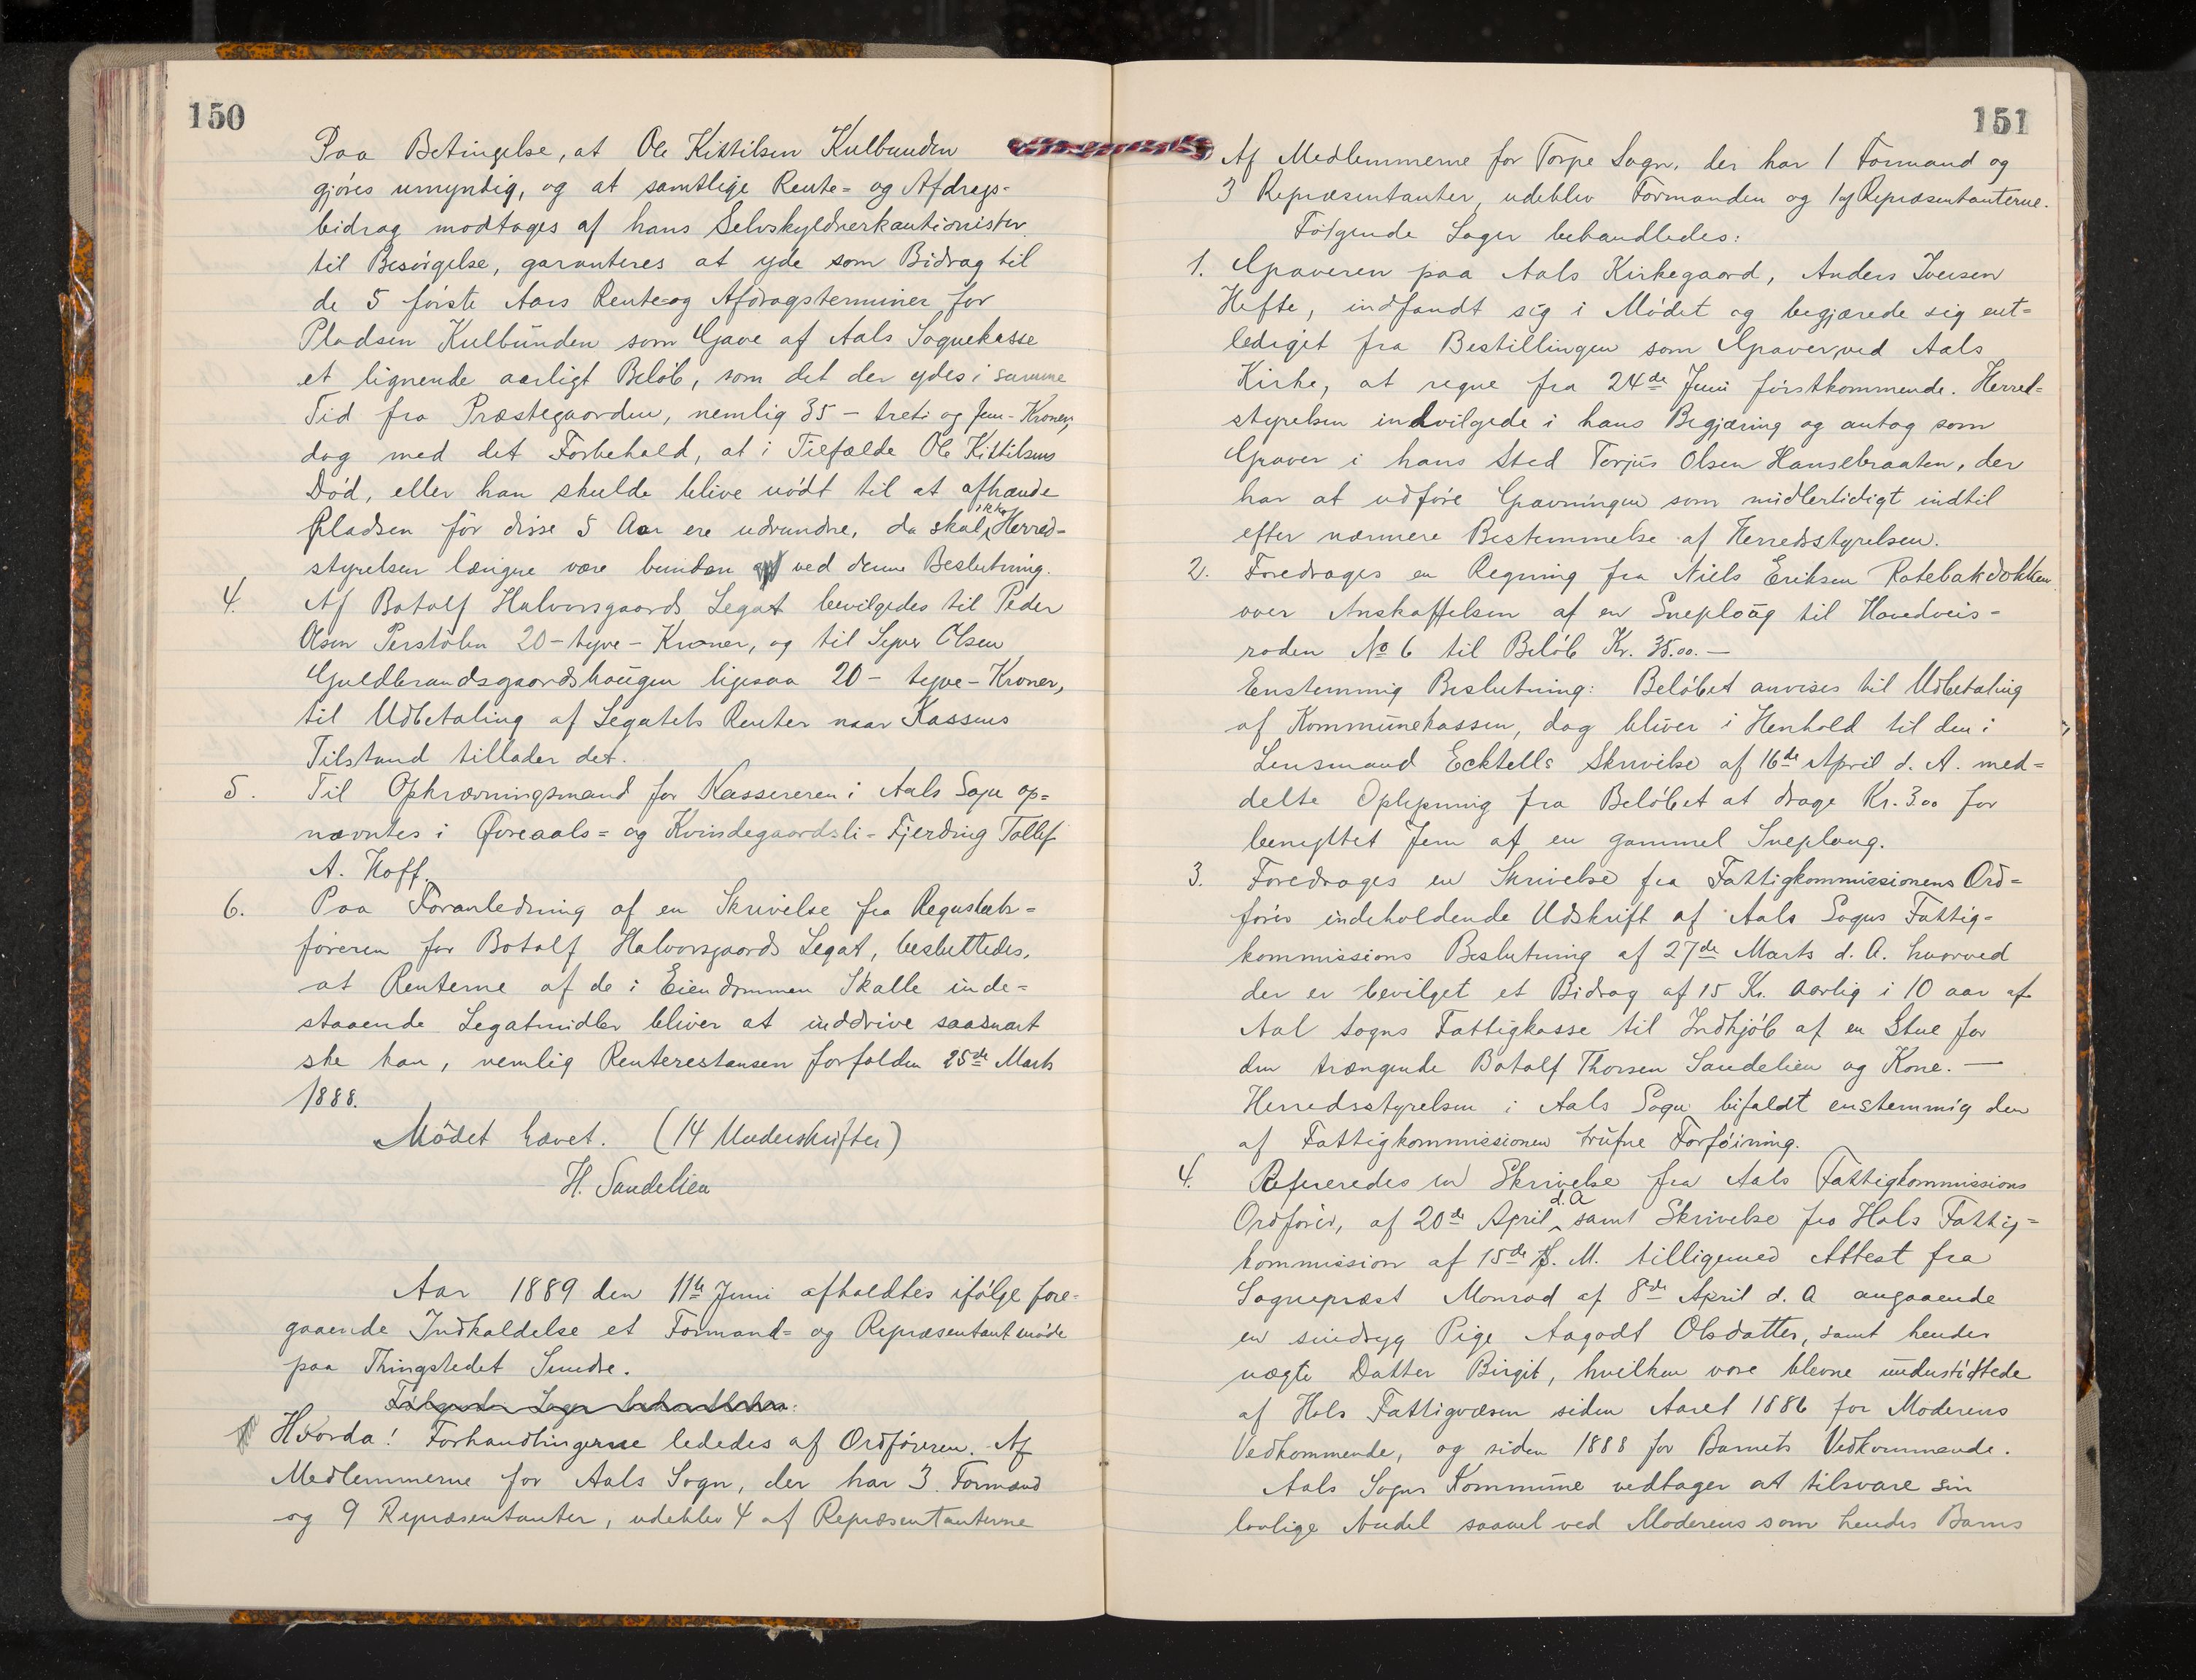 150
Paa Betingelse, at Ole Kittilsen Kulbunden
gjöres umyndig, og at samtlige Rente= og Afdrags-
bidrag modtages af hans Selvskyldnerkautionister
til Besörgelse, garanteres at yde som Bidrag til
de 5 förste Aars Rente=og Afdragsterminer for
Pladsen Kulbunden som Gave af Aals Sognekasse
et lignende aarligt Belöb, som det der ydes i samme
Tid fra Præstegaarden, nemlig 35 - treti og fem - Kroner,
dog med det Forbehold, at i Tilfælde Ole Kittilsens
Död, eller han skulde blive nödt til at afhænde
Pladsen för disse 5 Aar ere udrundne, da skal ikke Herred-
styrelsen længere være bunden ved denne Beslutning.
4. Af Botolf Halvorsgaards Legat bevilgedes til Peder
Olsen Perstölen 20 - tyve - Kroner, og til Syver Olsen
Guldbrandsgaardshaugen ligesaa 20 - tyve - Kroner,
til Udbetaling af Legatets Renter naar Kassens
Tilstand tillader det.
5. Til Opkrævningsmand for Kassereren i Aals Sogn op=
nævntes i Øvreaals= og Kvindegaardsli-Fjerding Tollef
A. Hoff.
6. Paa Foranledning af en Skrivelse fra Regnskabs=
föreren for Botolf Halvorsgaards Legat, besluttedes,
at Renterne af de i Eiendommen Skalle inde=
staaende Legatmidler bliver at inddrive saasnart
ske kan, nemlig Renterestansen forfalden 25de Marts
1888.
Mödet hævet. (14 Underskrifter)
H. Sandelien
Aar 1889 den 11te Juni afholdtes ifölge fore-
gaaende Indkaldelse et Formand= og Repræsentantmöde
paa Thingstedet Sundre.
Fölgende Sager behandledes:
Hvorda! Forhandlingerne lededes af Ordföreren. Af
Medlemmerne for Aals Sogn, der har 3 Formænd
og 9 Repræsentanter, udeblev 4 af Repræsentanterne
151
Af Medlemmerne for Torpe Sogn, der har 1 Formand og
3 Repræsentanter, udeblev Formanden og 1 af Repræsentanterne.
Fölgende Sager behandledes:
1. Graveren paa Aals Kirkegaard, Anders Iversen
Hefte, indfandt sig i Mödet og begjærede sig ent=
lediget fra Bestillingen som Graver ved Aals
Kirke, at regne fra 24de Juni förstkommende. Herred=
styrelsen indvilgede i hans Begjæring og antog som
Graver i hans Sted Torjus Olsen Hanselbraaten, der
har at udföre Gravningen som midlertidigt indtil
efter nærmere Bestemmelse af Herredsstyrelsen.
2. Foredrages en Regning fra Niels Eriksen Rotebakdokken
over Anskaffelsen af en Sneploug til Hovedveis-
roden No 6 til Belöb Kr. 35.00. —
Enstemmig Beslutning: Belöbet anvises til Udbetaling
af Kommunekassen, dog bliver i Henhold til den i
Lensmand Ecktells Skrivelse af 16de April d. A. med=
delte Oplysning fra Belöbet at drage Kr. 3.00 for
benyttet Jern af en gammel Sneploug.
3. Foredrages en Skrivelse fra Fattigkommissionens Ord=
förer indeholdende Udskrift af Aals Sogns Fattig=
kommissions Beslutning af 27de Marts d. A. hvorved
der er bevilget et Bidrag af 15 Kr. aarlig i 10 aar af
Aal sogns Fattigkasse til Indkjöb af en Stue for
den trængende Botolf Thorsen Sandelien og Kone. —
Herredsstyrelsen i Aals Sogn bifaldt enstemmig den
af Fattigkommissionen trufne Forföining.
4. Refereredes en Skrivelse fra Aals Fattigkommissions
Ordförer, af 20de April d. A samt Skrivelse fra Hols Fattig=
kommission af 15de s. M. tilligemed Attest fra
Sognepræst Monrad af 8de April d. A angaaende
en sindsyg Pige Aagodt Olsdatter, samt hendes
uægte Datter Birgit, hvilken vare blevne understöttede
af Hols Fattigvæsen siden Aaret 1886 for Moderens
Vedkommende, og siden 1888 for Barnets Vedkommende.
Aals Sogns Kommune vedtager at tilsvare sin
lovlige Andel saavel ved Moderens som hendes Barns